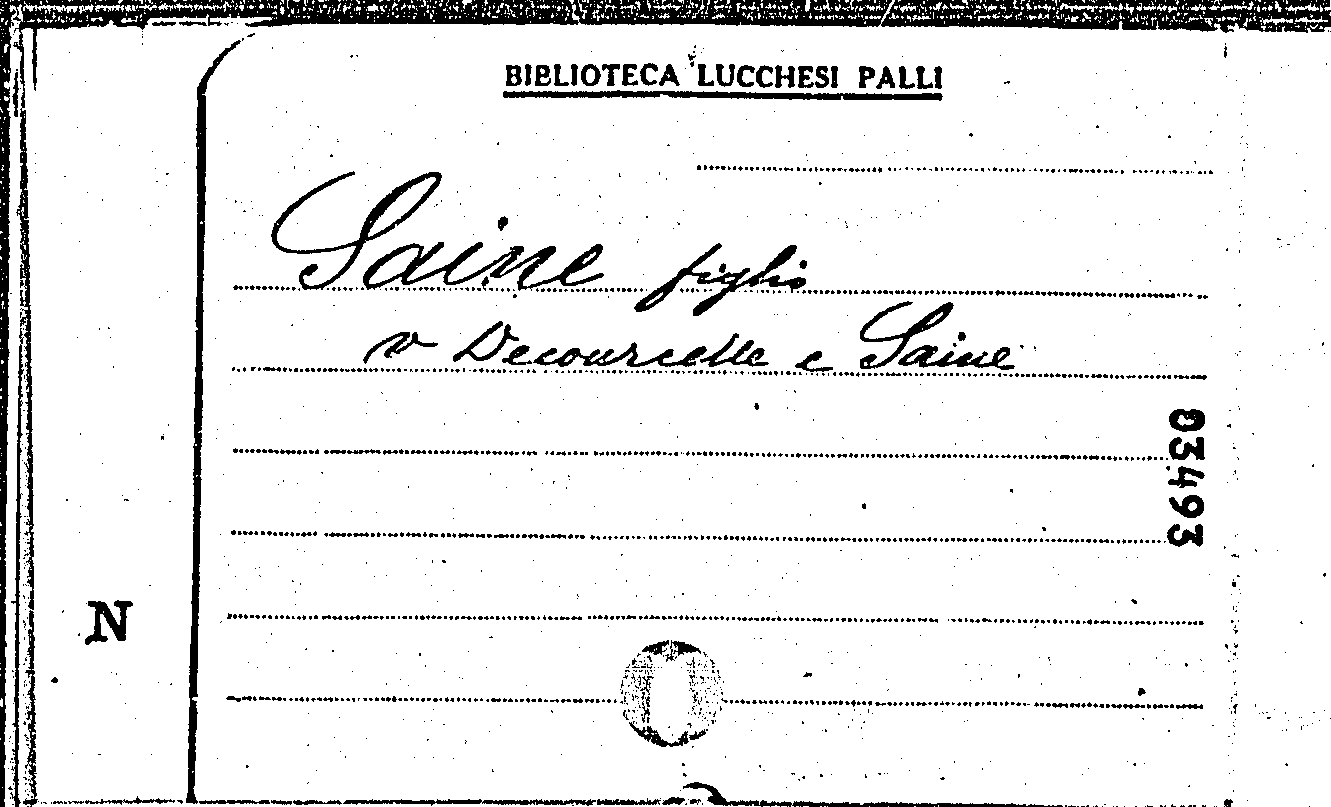 BIBLIOTECA LUCCHESI PALLI
Saine figlio
v Decourcelle e Saine
03493
N